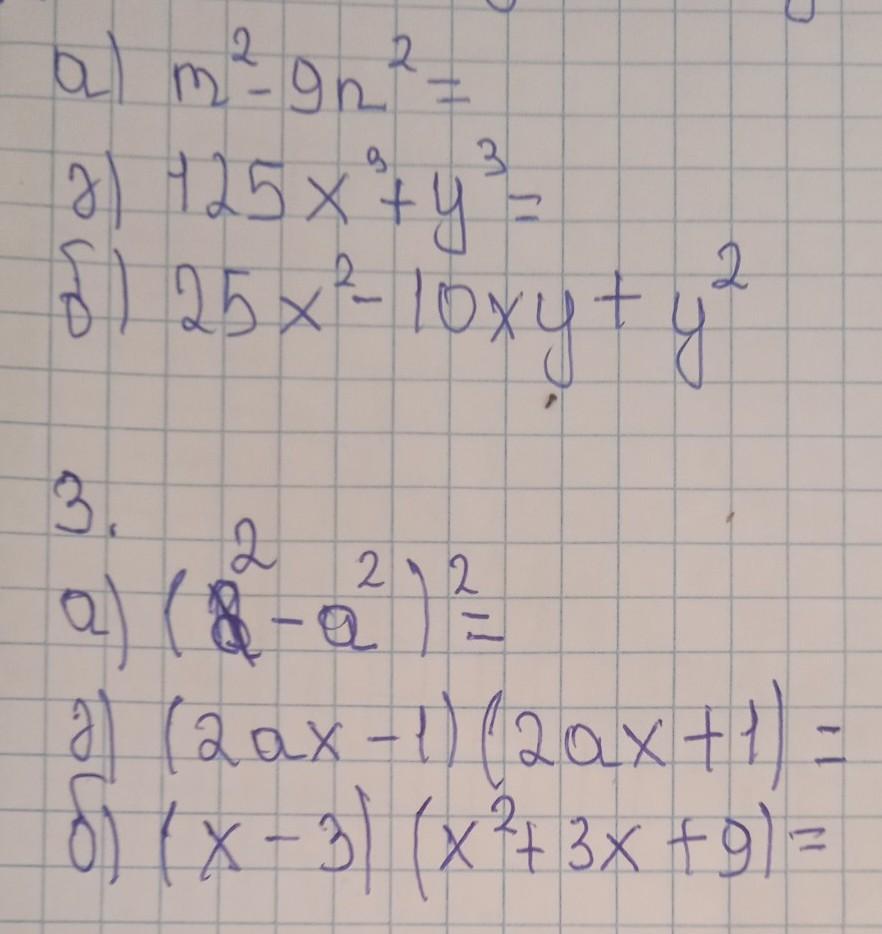 а) m²-9n²=
д) 125x³+y³=
б) 25x²-10xy+y²
3.
а) ( ² - a²)²=
д) (2ax-1)(2ax+1)=
б) (x-3)(x²+3x+9)=